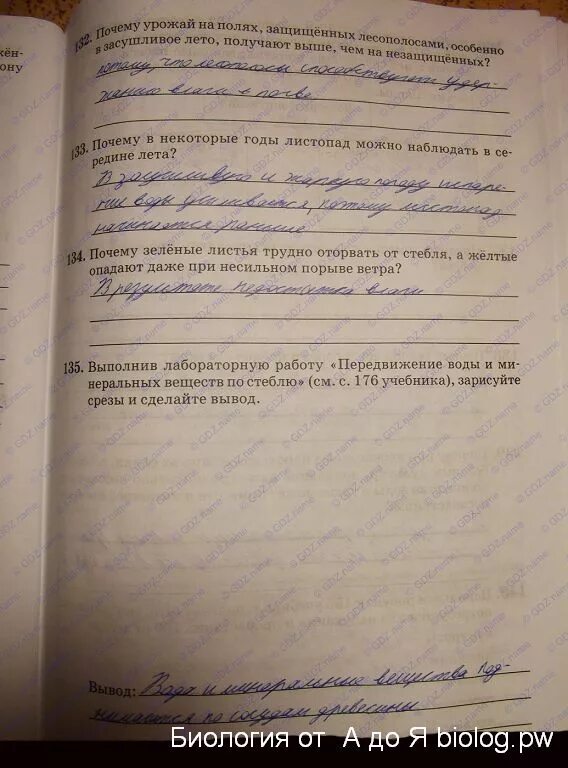 132. Почему урожай на полях, защищённых лесополосами, особенно
в засушливое лето, получают выше, чем на незащищённых?
потому, что лесополосы способствуют удер-
жанию влаги в почве
133. Почему в некоторые годы листопад можно наблюдать в се-
редине лета?
В засушливую и жаркую погоду испаре-
ние воды усиливается, потому листопад
начинается раньше
134. Почему зелёные листья трудно оторвать от стебля, а жёлтые
опадают даже при несильном порыве ветра?
В результате недостатка влаги
135. Выполнив лабораторную работу «Передвижение воды и ми-
неральных веществ по стеблю» (см. с. 176 учебника), зарисуйте
срезы и сделайте вывод.
Вывод: Вода и минеральные вещества под-
нимаются по сосудам древесины
жён-
ону
© GDZ.name
Биология от А до Я biolog.pw